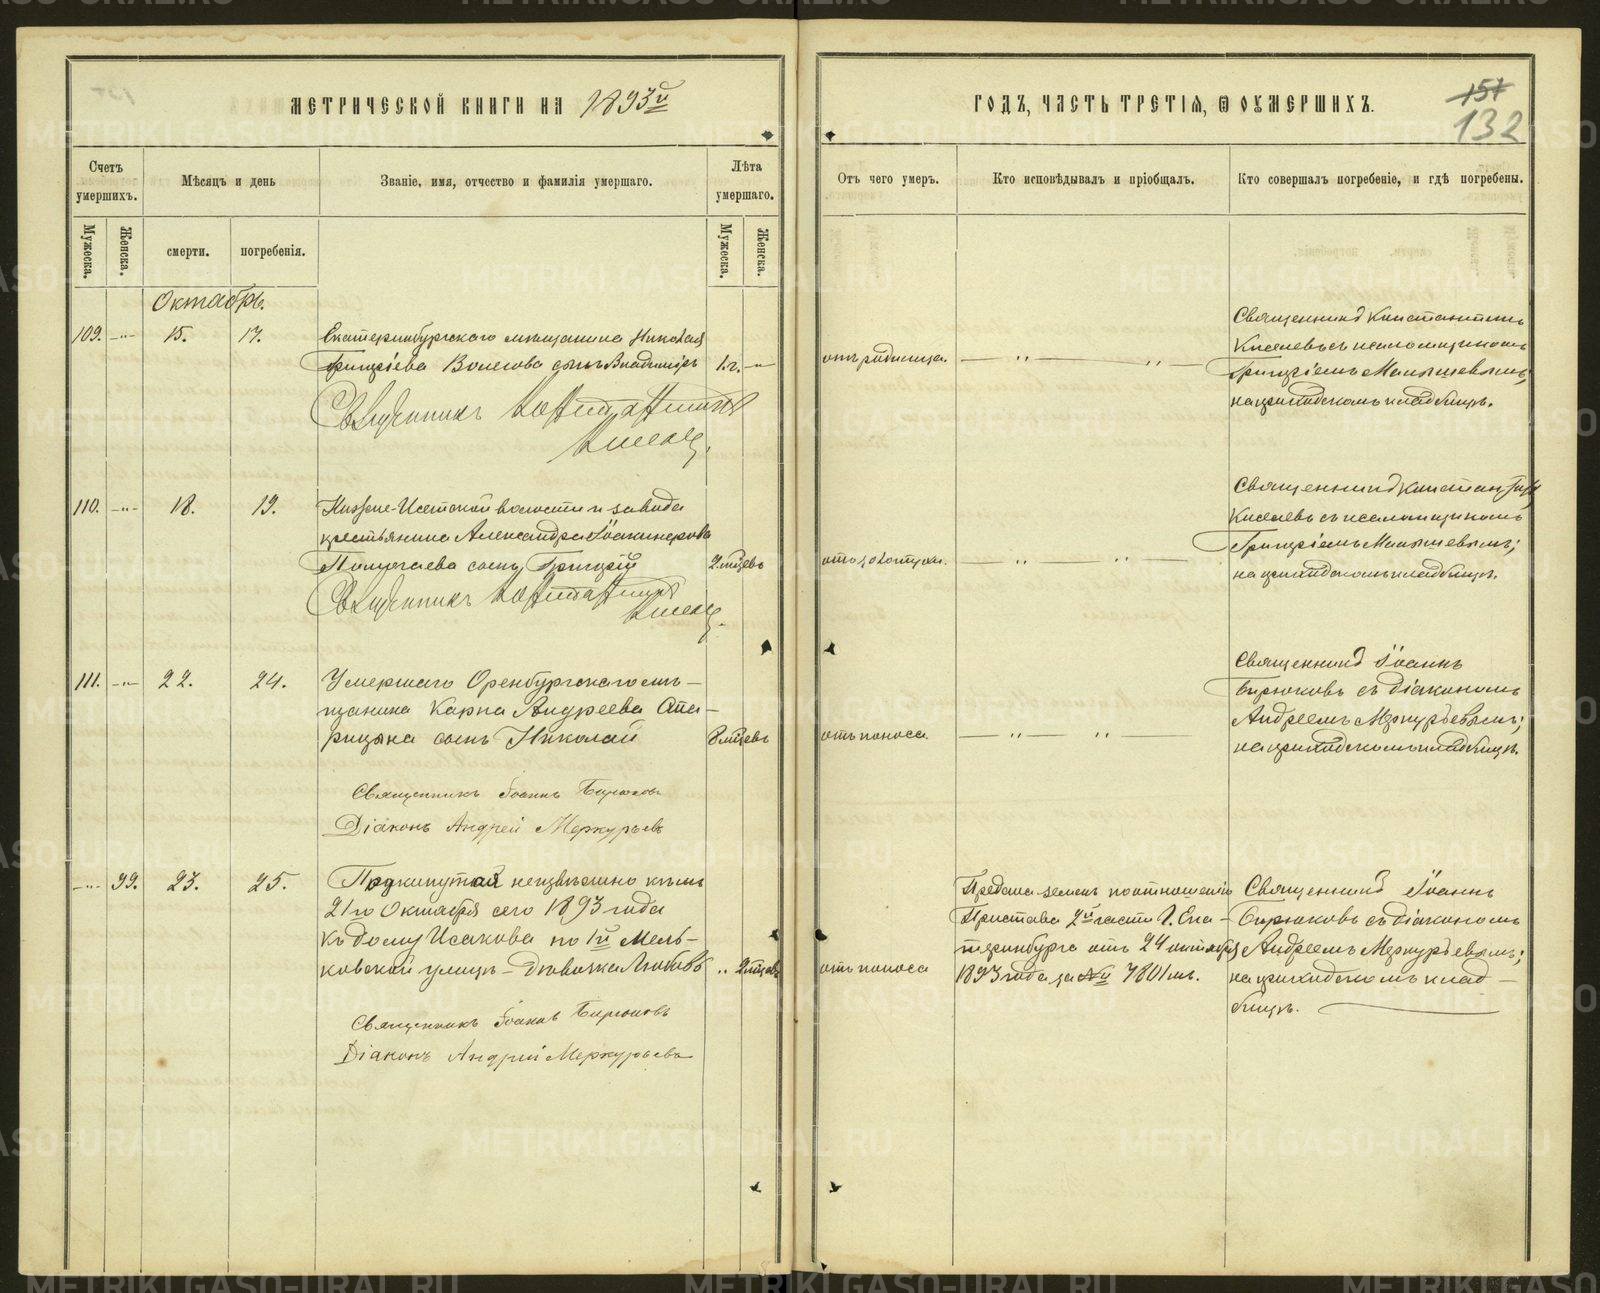 МЕТРИЧЕСКОЙ КНИГИ НА 1893й
ГОДЪ, ЧАСТЬ ТРЕТІЯ, Ѿ ОУМЕРШИХЪ.
151
132
Счетъ умершихъ.
Мѣсяцъ и день
Званіе, имя, отчество и фамилія умершаго.
Лѣта умершаго.
Отъ чего умеръ.
Кто исповѣдывалъ и пріобщалъ.
Кто совершалъ погребеніе, и гдѣ погребены.
Мужеска.
Женска.
смерти.
погребенія.
Мужеска.
Женска.
Октябрь.
109. -"- 15. 17.
Екатеринбургскаго мѣщанина Николая
Григоріева Волегова сынъ Владиміръ
1 г. -"-
отъ родимца. — " — "  —
Священникъ Константинъ
Киселевъ съ псаломщикомъ
Григоріемъ Малышевымъ;
на приходскомъ кладбищѣ.
Священникъ Константинъ
Киселевъ.
110. -"- 18. 19.
Нижне-Исетской волости и завода
крестьянина Александра Іоакимова
сынъ Григорій
2 мѣсцевъ
— " — " —
Священникъ Константинъ
Киселевъ съ псаломщикомъ
Григоріемъ Малышевымъ;
на приходскомъ кладбищѣ.
Священникъ Константинъ
Киселевъ.
111. -"- 22. 24.
Умершаго Оренбургскаго мѣ-
щанина Карпа Андреева Апа-
сынъ Николай
8 мѣсцевъ
отъ поноса. — " — " —
Священникъ Іоаннъ
Бирюковъ съ діакономъ
Андреемъ Меркурьевымъ;
на приходскомъ кладбищѣ.
Священникъ Іоаннъ Бирюковъ
Діаконъ Андрей Меркурьевъ
-"- 99. 23. 25.
Подкинутая неизвѣстно кѣмъ
21го Октября сего 1893 года
къ дому Исакова по 1й Мель-
ковской улицѣ - дѣвочка Любовь
" 2 мѣсцевъ
отъ поноса
Предана землѣ по отношенію
Пристава 2й части г. Ека-
теринбурга отъ 24 октября
1893 года за № 7801мъ.
Священникъ Іоаннъ
Бирюковъ съ діакономъ
Андреемъ Меркурьевымъ;
на приходскомъ клад-
бищѣ.
Священникъ Іоаннъ Бирюковъ
Діаконъ Андрей Меркурьевъ
METRIKI.GASO-URAL.RU